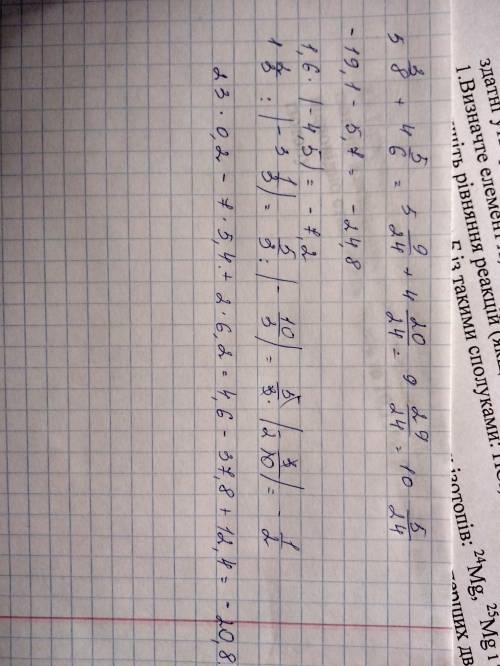 здатні у
1.Визначте елемент
шіть рівняння реакцій (якщ
із такими сполуками:
ізотопів: ²⁴Mg, ²⁵Mg і
перших дв
5 3/8 + 4 5/6 = 5 9/24 + 4 20/24 = 9 29/24 = 10 5/24
-19,1 - 5,7 = -24,8
1,6 · (-4,5) = -7,2
1 2/3 : (-3 1/3) = 5/3 : (-10/3) = 5/3 · (3/10) = - 1/2
23 · 0,2 - 7 · 5,4 + 2 · 6,2 = 4,6 - 37,8 + 12,4 = -20,8.